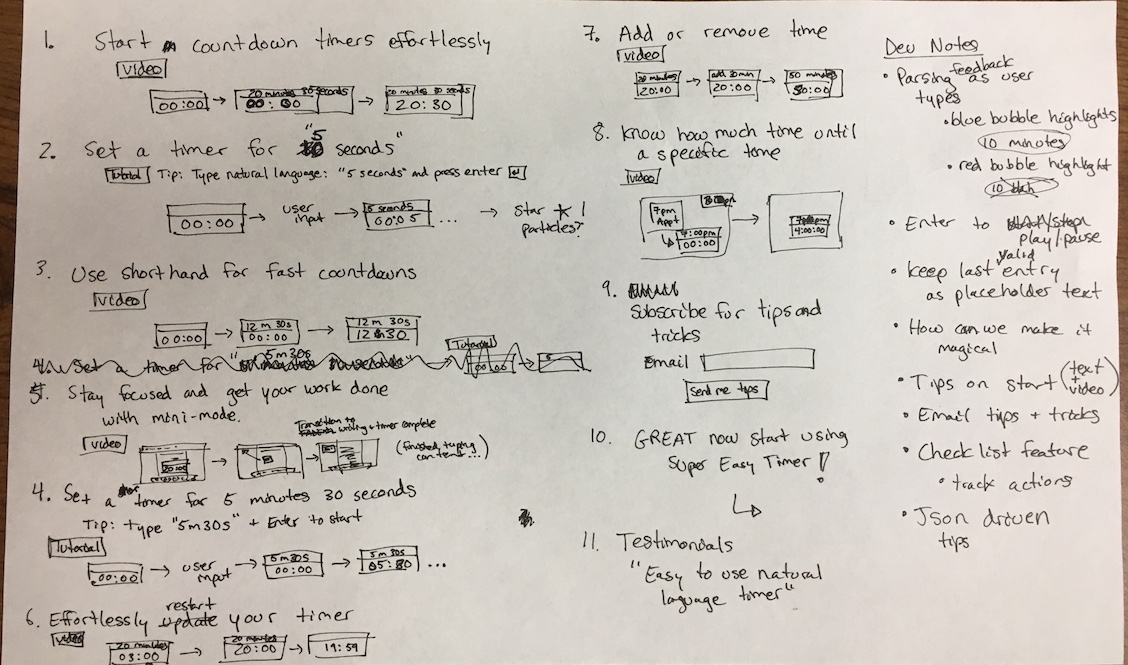 1. Start countdown timers effortlessly
Video
00:00 → 20 minutes 30 seconds 00:00 → 20 minutes 30 seconds 20:30
2. Set a timer for "5 seconds"
Tutorial Tip: Type natural language: "5 seconds" and press enter ↵
00:00 → user input → 5 seconds 00:05 ... → Star ★! particles?
3. Use shorthand for fast countdowns
Video
00:00 → 12m 30s 00:00 → 12m 30s 12:30
4. Set a timer for "5m30s" Tutorial 00:00 →
5. Stay focused and get your work done
with mini-mode.
Video
Transition to writing + timer complete
20:00 → → (finished, typing can tend...)
4. Set a timer for 5 minutes 30 seconds
Tip: type "5m30s" + Enter to start
Tutorial
00:00 → user input → 5m30s 00:00 → 5m30s 05:30 ...
6. Effortlessly update restart your timer
Video
20 minutes 03:00 → 20 minutes 20:00 → 19:59
7. Add or remove time
Video
20 minutes 20:00 → add 30min 20:00 → 50 minutes 50:00
8. Know how much time until
a specific time
Video
7pm Appt 7:00pm 00:00 → 7:00pm 4:00:00
9. Subscribe for tips and
tricks
Email
Send me tips
10. GREAT now start using
Super Easy Timer!
11. Testimonials
"Easy to use natural
language timer"
Dev Notes
• Parsing feedback as user
types
• blue bubble highlights
10 minutes
• red bubble highlight
10 blah
• Enter to start/stop
play/pause
• Keep last valid entry
as placeholder text
• How can we make it
magical
• Tips on start (text + video)
• Email tips + tricks
• Checklist feature
• track actions
• Json driven
tips